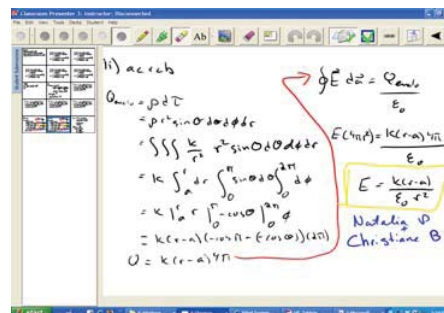 Classroom Presenter 3: Instructor: Disconnected
File Edit View Tools Decks Student Help
Ab
ii) a<r<b
Q encl = ρ dτ
= ρ r² sinθ dθ dφ dr
= ∫∫∫ k/r² r² sinθ dθ dφ dr
= k ∫ₐʳ dr ∫₀^π sinθ dθ ∫₀^2π dφ
= k |ₐʳ r |₀^π -cosθ |₀^2π φ
= k(r-a)(-cosπ-(-cos0))(2π)
= k(r-a)4π
∮ E⃗ da⃗ = Q encl / ε₀
E(4πr²) = k(r-a)4π / ε₀
E = k(r-a) / ε₀ r²
Natalia
Christiane B